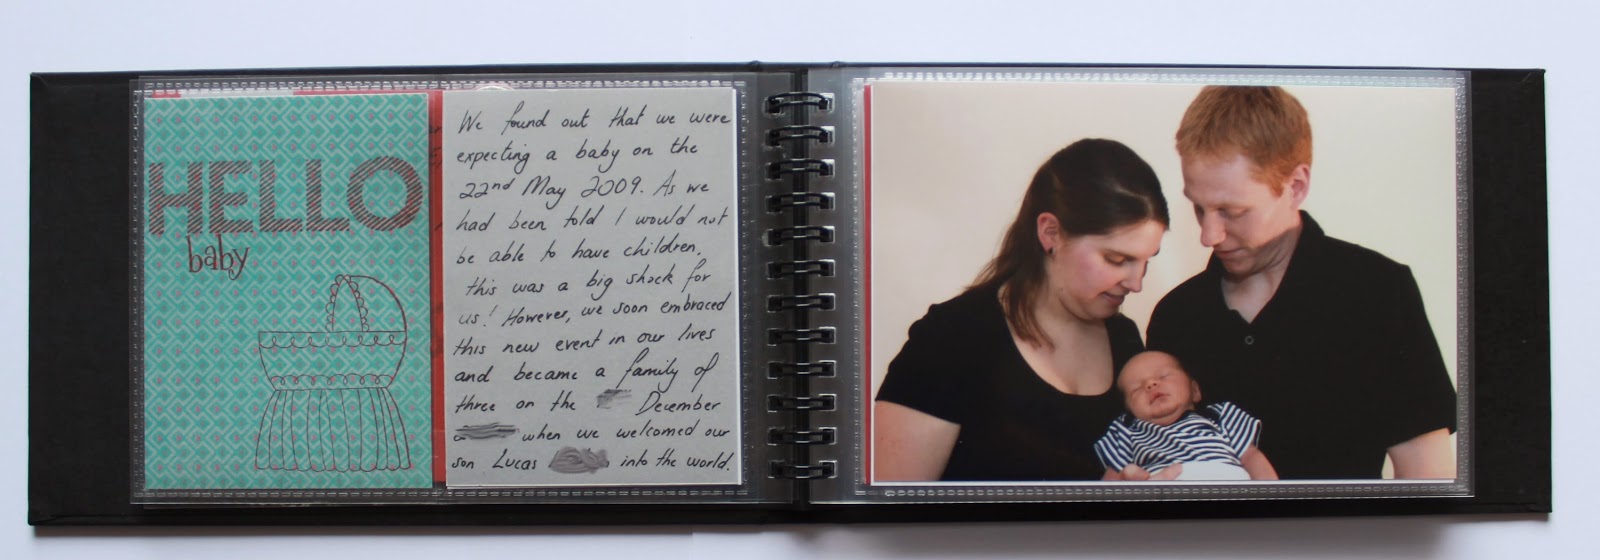 HELLO
baby
We found out that we were
expecting a baby on the
22nd May 2009. As we
had been told I would not
be able to have children,
this was a big shock for
us! However, we soon embraced
this new event in our lives
and became a family of
three on the December
when we welcomed our
son Lucas into the world.